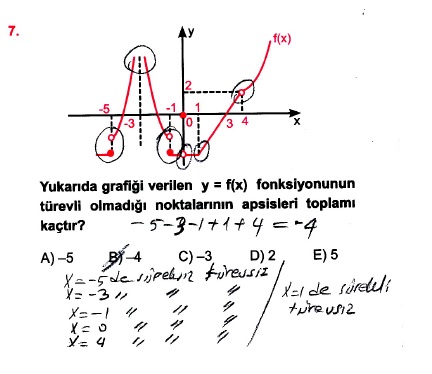 7.
y
f(x)
2
-5 -3 -1 0 1 3 4 x
Yukarıda grafiği verilen y = f(x) fonksiyonunun
türevli olmadığı noktalarının apsisleri toplamı
kaçtır? -5-3-1+1+4=-4
A) –5 B) –4 C) –3 D) 2 E) 5
X=-5 de süreksiz türevsiz
X=-3 " " "
X=-1 " " "
X=0 " " "
X=4 " " "
X=1 de sürekli
türevsiz